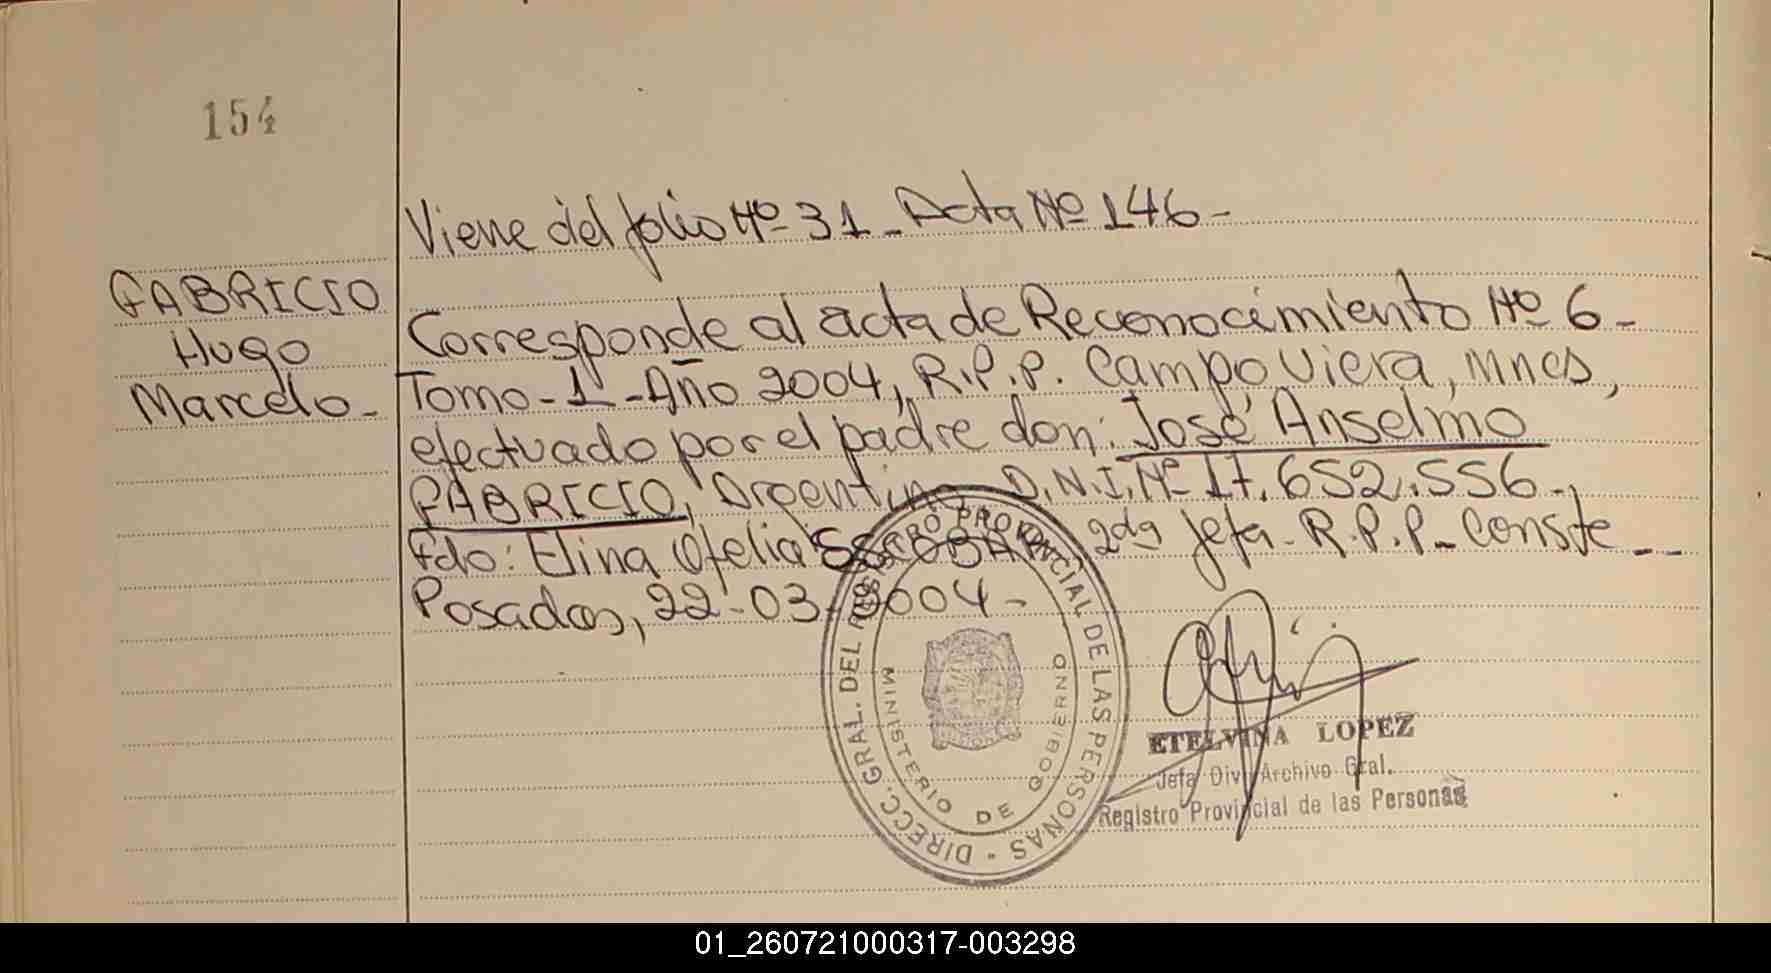 154
Viene del folio Nº 31 - Acta Nº 146 -
GABRICIO
Hugo
Marcelo -
Corresponde al acta de Reconocimiento Nº 6 -
Tomo - 1 - Año 2004, R.P.P. Campo Viera, Mnes,
efectuado por el padre don: José Anselmo
GABRICIO, Argentino D.N.I. Nº 17.652.556 -,
Fdo: Elina Ofelia ESCOBAR, 2da Jefa - R.P.P - Conste --
Posadas, 22-03-2004 -
DIRECC. GRAL. DEL REGISTRO PROVINCIAL DE LAS PERSONAS -
MINISTERIO DE GOBIERNO
ETELVINA LOPEZ
Jefa Div. Archivo Gral.
Registro Provincial de las Personas
01_260721000317-003298